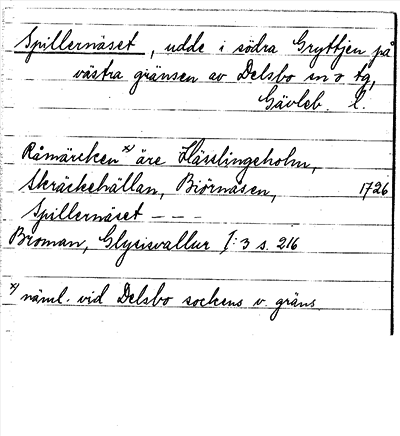 Spillernäset, udde i södra Gryttjen på
västra gränsen av Delsbo sn o tg,
Gävleb. l.
Råmärcken x) äre Hässlingeholm,
Skräckehällan, Biörnäsen, 1726
Spillernäset – –
Broman, Glysisvallur I:3 s. 216
x) näml. vid Delsbo sockens v. gräns.